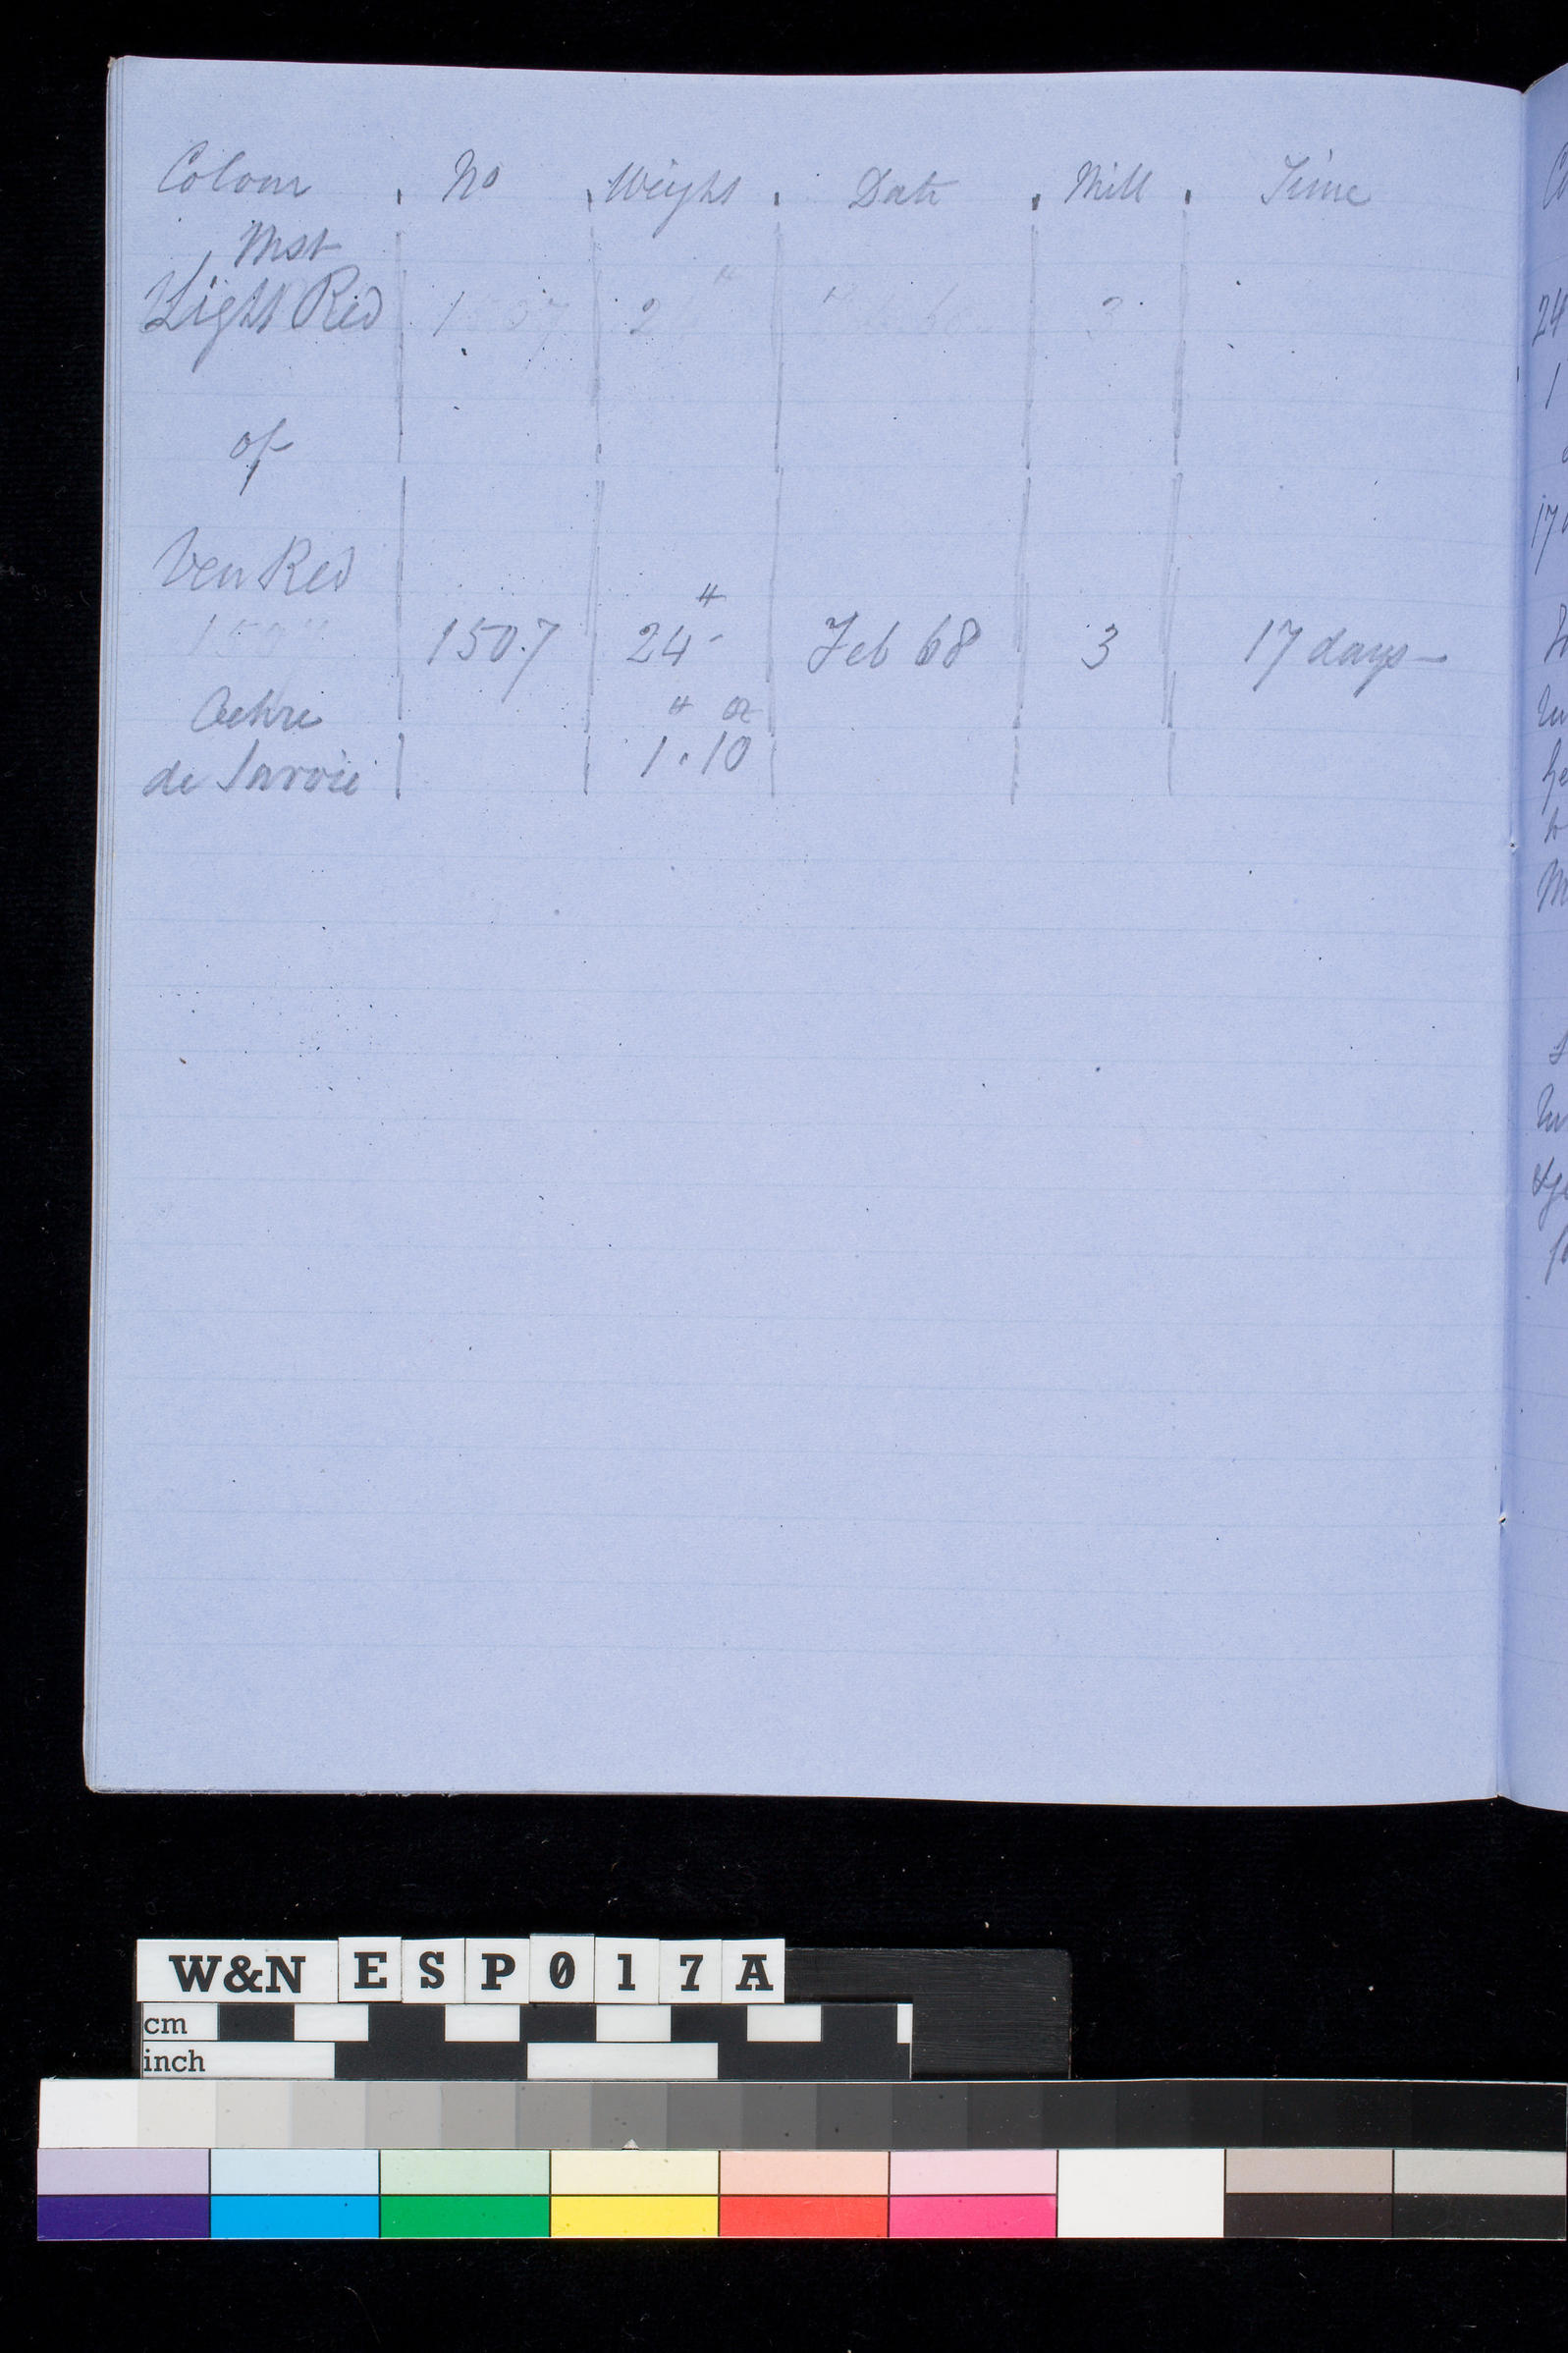 Colour No Weight Date Mill Time
Mst
Light Red
of
Ven Red
1507 1507 24 - # Feb 68 3 17 days -
Ochre # oz
de Savoie 1.10
W&N ESP017A
cm
inch